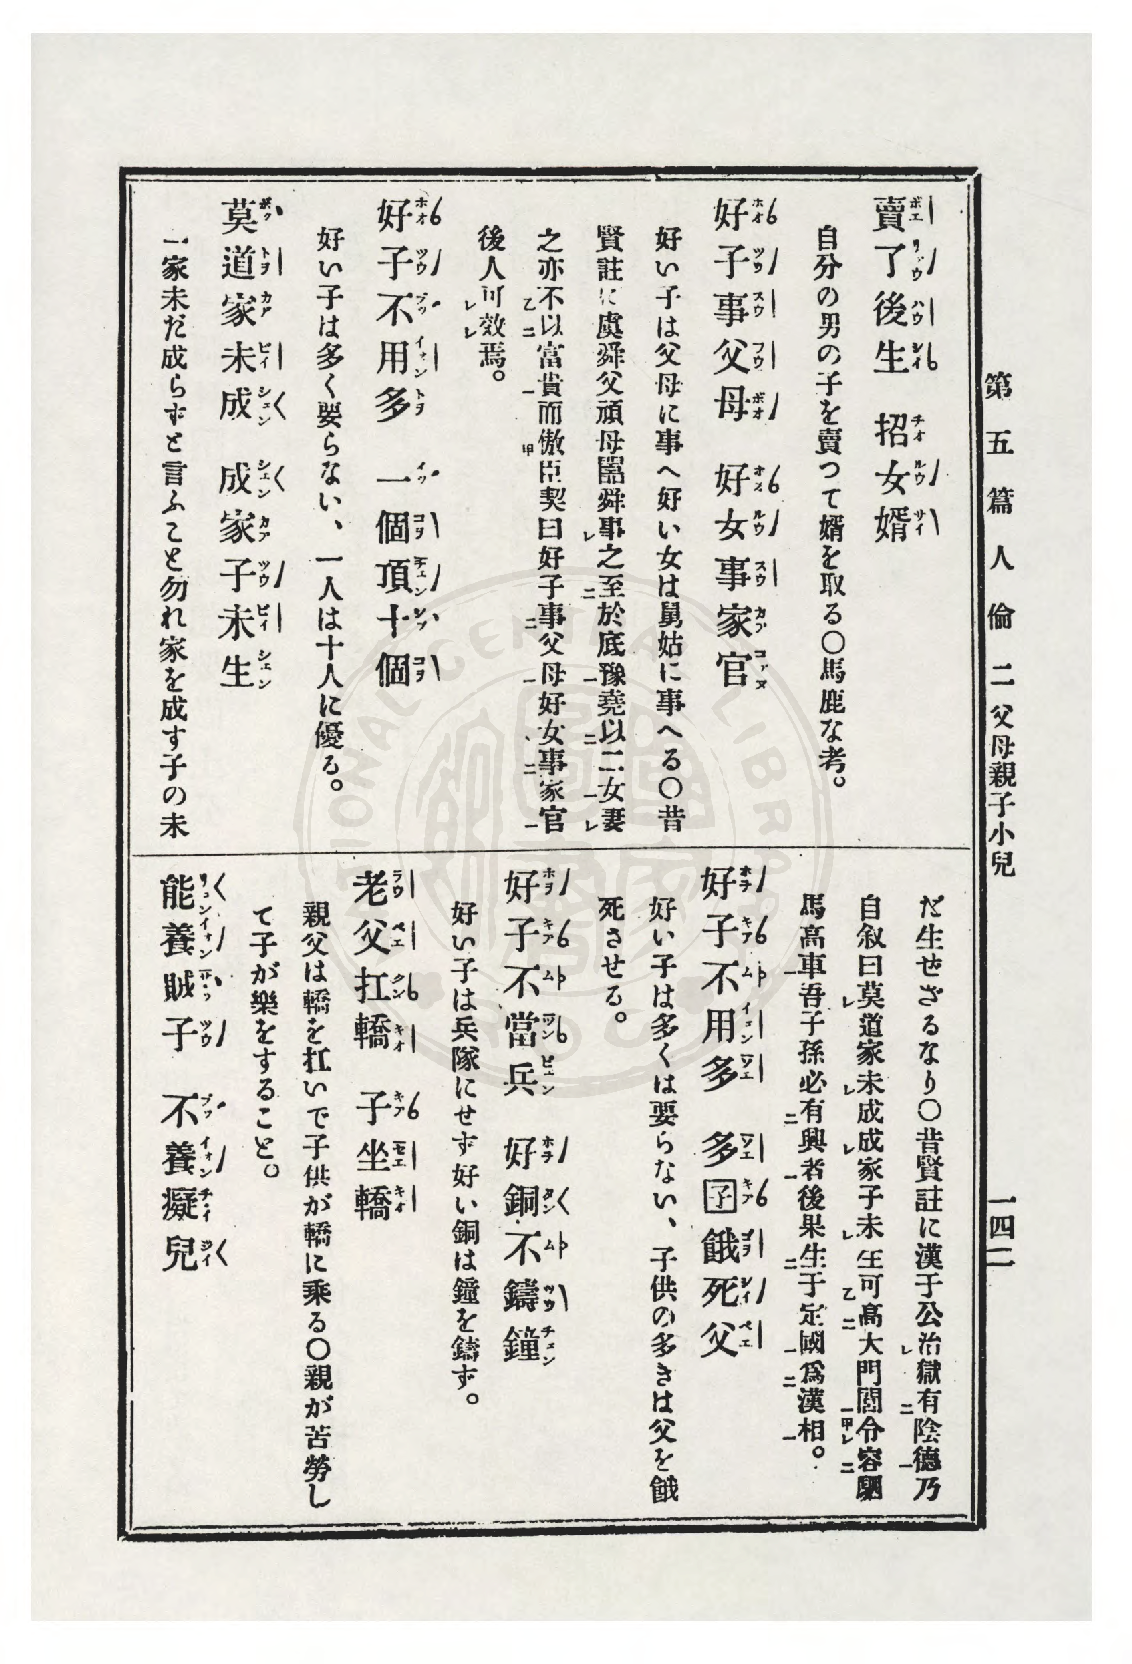 第五篇 人倫 二 父母親子小兒 一四二
賣了後生 招女婿
自分の男の子を賣つて婿を取る〇馬鹿な考。
好子事父母 好女事家官
好い子は父母に事へ好い女は舅姑に事へる〇昔
賢註に虞舜父頑母嚚舜事之至於底豫堯以二女妻
之亦不以富貴而傲臣契曰好子事父母好女事家官
後人可效焉。
好子不用多 一個頂十個
好い子は多く要らない、一人は十人に優る。
莫道家未成 成家子未生
一家未だ成らずと言ふこと勿れ家を成す子の未
だ生せざるなり〇昔賢註に漢于公治獄有陰德乃
自叙曰莫道家未成成家子未生可高大門閭令容駟
馬高車吾子孫必有興者後果生于定國爲漢相。
好子不用多 多子餓死父
好い子は多くは要らない、子供の多きは父を餓
死させる。
好子不當兵 好銅不鑄鐘
好い子は兵隊にせず好い銅は鐘を鑄ず。
老父扛轎 子坐轎
親父は轎を扛いで子供が轎に乘る〇親が苦勞し
て子が樂をすること。
能養賊子 不養癡兒
NATIONAL CENTRAL LIBRARY R.O.C